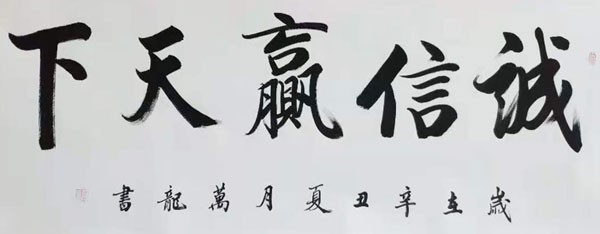 誠信贏天下
歲在辛丑夏月萬龍書